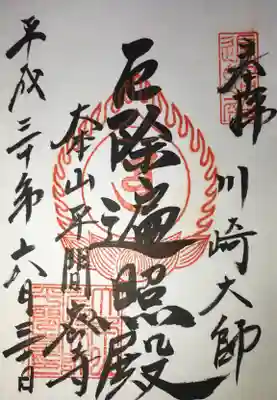 奉拝
川崎大師
厄除遍照殿
大本山平間寺
平成三十年六月三十日